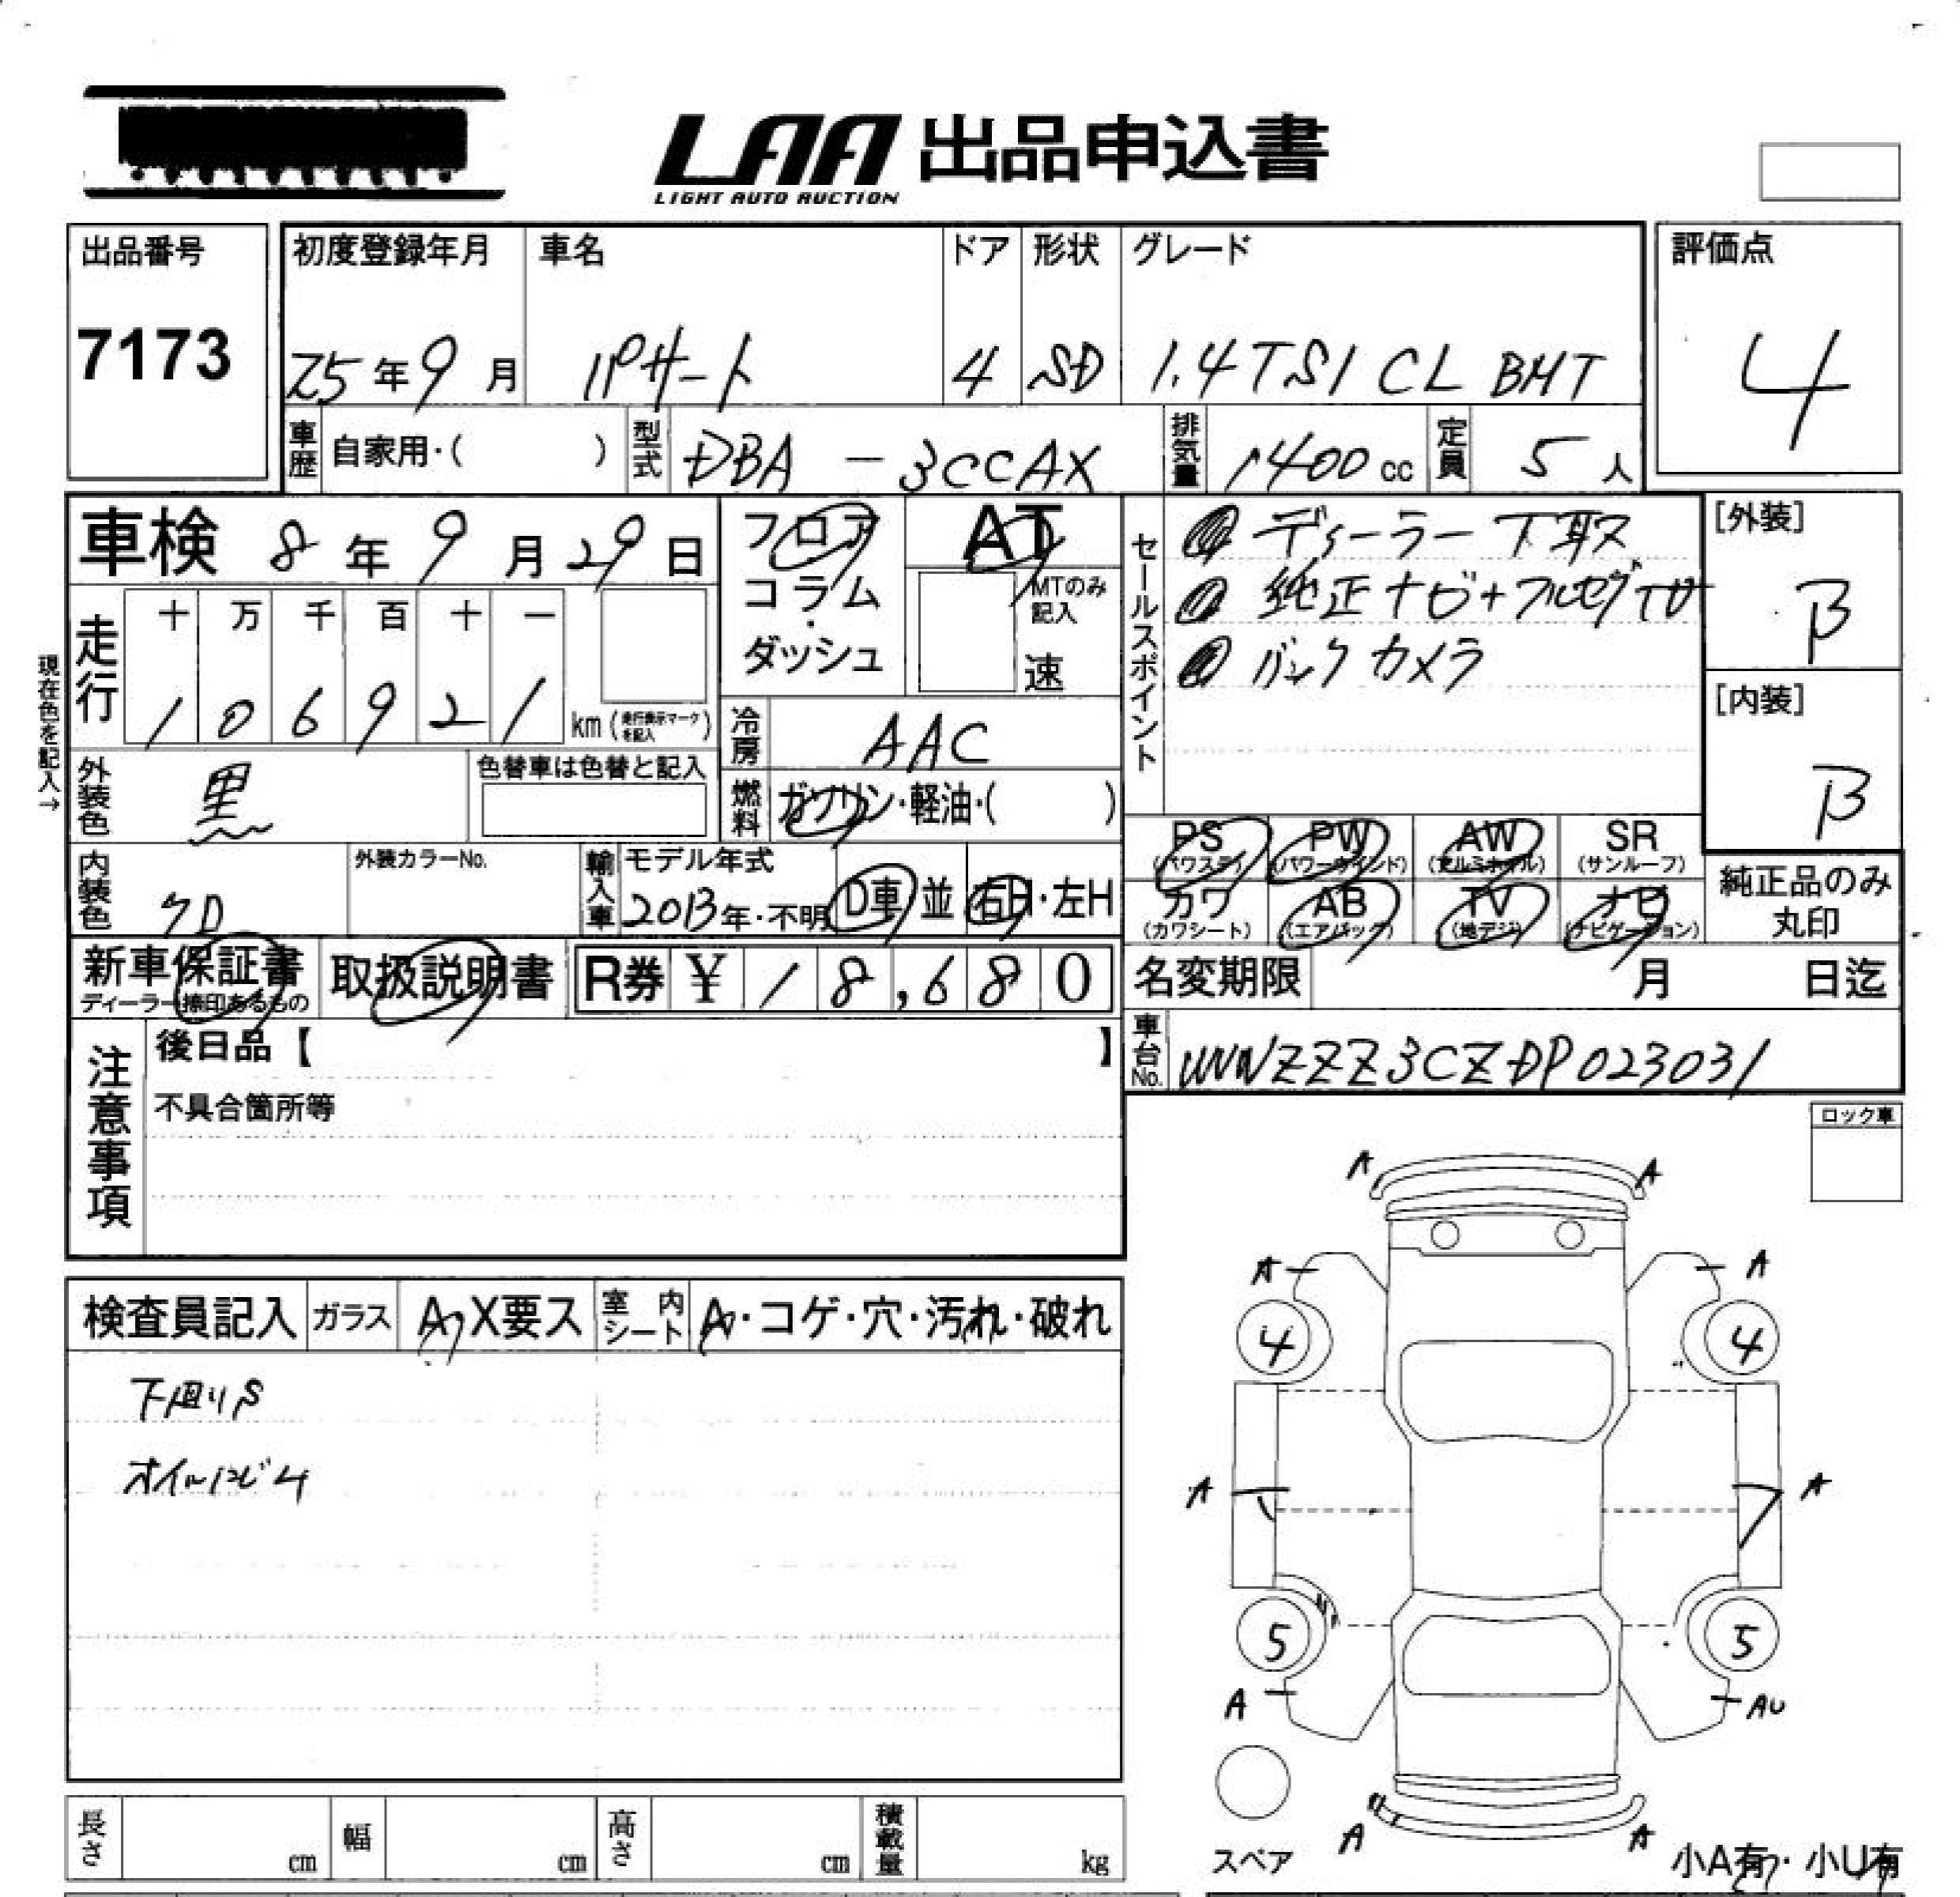 LAA 出品申込書
LIGHT AUTO AUCTION
出品番号
7173
初度登録年月
25年9月
車名
パサート
ドア
4
形状
SD
グレード
1.4TSI CL BMT
評価点
4
車歴 自家用・( )
型式 DBA-3CCAX
排気量 1400cc
定員 5人
車検 8年9月29日
フロア
コラム・
ダッシュ
AT
MTのみ記入
速
セールスポイント
① ディーラー下取ス
② 純正ナビ+フルセグTV
③ バックカメラ
[外装]
B
[内装]
B
現在色を記入→
走行
十 万 千 百 十 一
1 0 6 9 2 1 km (走行表示マークを記入)
冷房 AAC
燃料 ガソリン・軽油・( )
外装色 黒
色替車は色替と記入
内装色 クロ
外装カラーNo.
輸入車 モデル年式
2013年・不明 D車 並 右H・左H
PS (パワステ)
PW (パワーウインド)
AW (アルミホイル)
SR (サンルーフ)
カワ (カワシート)
AB (エアバック)
TV (地デジ)
ナビ (ナビゲーション)
純正品のみ
丸印
新車保証書
ディーラー捺印あるもの
取扱説明書
R券 ¥ 18,680
名変期限 月 日迄
車台No. WVWZZZ3CZDP023031
注意事項
後日品【 】
不具合箇所等
ロック車
検査員記入 ガラス A・X要ス 室内シート A・コゲ・穴・汚れ・破れ
下廻りS
オイルにじム
A A
A A
4 4
A A
5 5
A AU
A A
スペア
小A有・小U有
長さ cm
幅 cm
高さ cm
積載量 kg